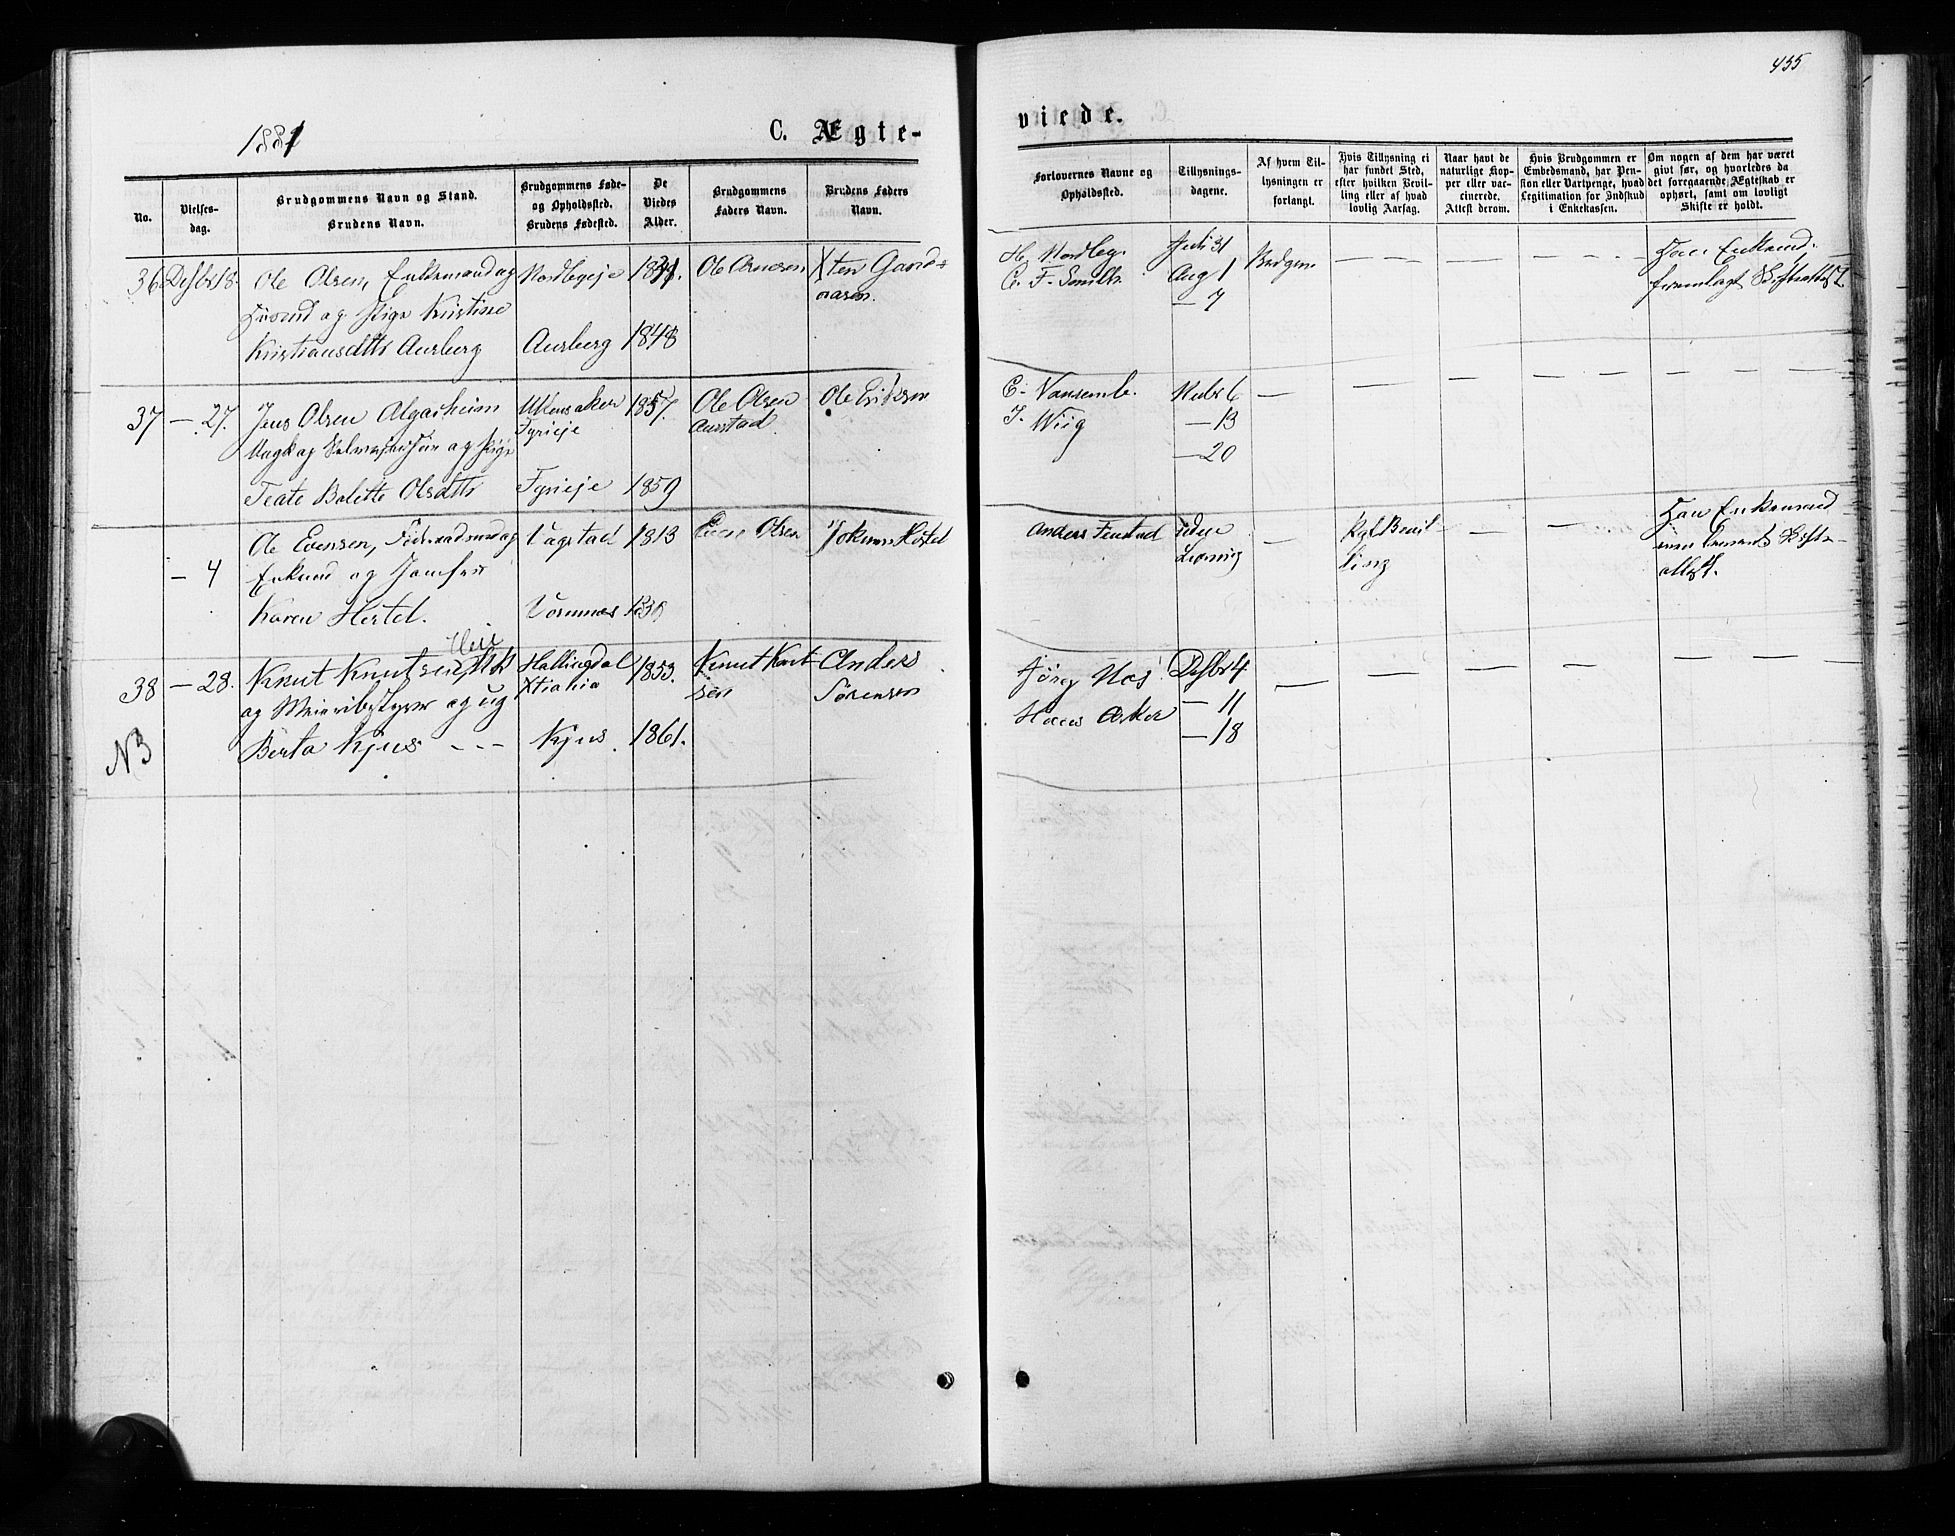 455
1881
C. Ægte-
viede.
No.
Vielses-
dag.
Brudgommens Navn og Stand.
Brudens Navn.
Brudgommens Føde-
og Opholdssted.
Brudens Fødested.
De
Viedes
Alder.
Brudgommens
Faders Navn.
Brudens Faders
Navn.
Forlovernes Navne og
Opholdssted.
Tillysnings-
dagene.
Af hvem Til-
lysningen er
forlangt.
Hvis Tillysning ei
har fundet Sted,
efter hvilken Bevil-
ling eller af hvad
lovlig Aarsag.
Naar havt de
naturlige Kop-
per eller var-
cinerede.
Attest derom.
Hvis Brudgommen er
Embedsmand, har Pen-
sion eller Vartpenge, hvad
Legitimation for Indskud
i Enkekassen.
Om nogen af dem har været
givt før, og hvorledes da
det foregaaende Ægteskab er
ophørt, samt om lovligt
Skifte er holdt.
36 Desbr 18. Ole Olsen, Enkemand og
og Pige Kristine
Kristiansdttr Aurberg
Nordbyeje
Aurberg
1848
Ole Arnesen
Xten
H. Nordby
C. F. Smith
Juli 31
Aug 1
— 7
Brudgom
Enkemand,
fremlagt Skifteattest
37 — 27. Jens Olsen Algarheim
og Pige
Teate Bolette Olsdttr
Ullensaker
Fyrieje
Fyrieje
1857.
1859
Ole Olsen
Ole Eriksen
C. Vansemb.
J. Wiig
Nvbr 6
— 13
— 20
—
— 4
Ole Evensen, og
Enkemd og Jomfru
Karen Hertel.
Vormnæs
1813
1830
Even Olsen
Johannes Hertel
Anders Finstad
uden
Lysning
Kgl Bevil
ling
Enkemand
attest.
38 — 28.
NB
Knut Knutsen
Heie
og Meieribestyrer og ug
Berta Kjus - - -
Hallingdal
Xtiania
Kjus
1853.
1861.
Knut Knut-
sen
Anders
Sørensen
Jørg Næs
Hans Asker
Desbr 4
— 11
— 18